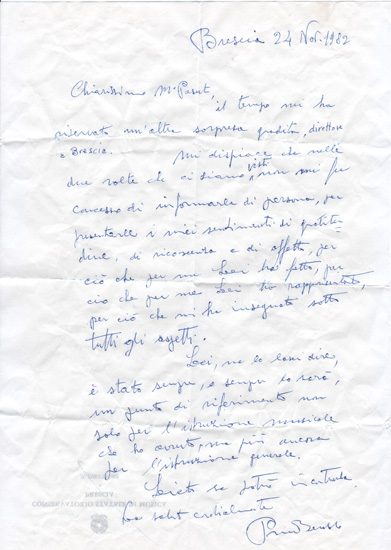 Brescia 24 Nov. 1982
Chiarissimo M° Pasut,
il tempo mi ha
riservato un'altra sorpresa gradita, direttore
a Brescia.
Mi dispiace che nelle
due volte che ci siamo visti, non mi fu
concesso di informarla di persona, per
presentarle i miei sentimenti di gratitu-
dine, di riconoscenza e di affetto, per
ciò che per me Lei ha fatto, per
ciò che per me Lei ha rappresentato,
per ciò che mi ha insegnato sotto
tutti gli aspetti.
Lei, me lo lasci dire,
è stato sempre, e sempre lo sarà,
un punto di riferimento non
solo per l'istruzione musicale
che ho avuto, ma più ancora
per l'istruzione generale.
Lieto se potrò incontrarla
La saluto cordialmente